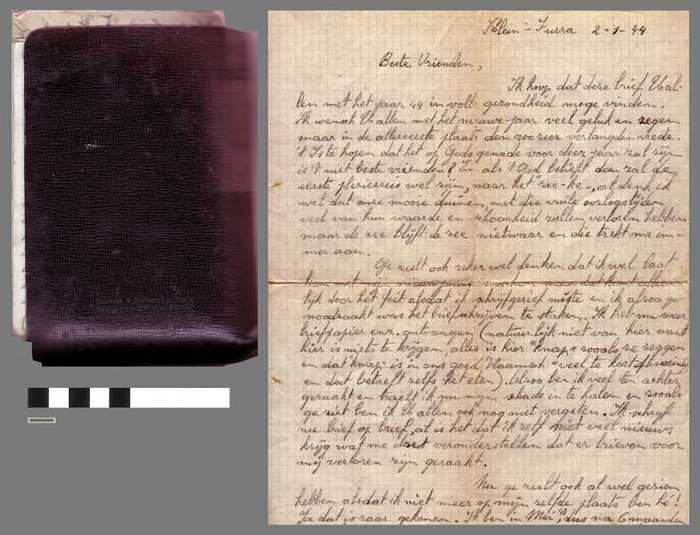 Klein-Furra 2-1-44
Beste Vrienden,
Ik hoop dat deze brief U al-
len met het jaar 44 in volle gezondheid moge vinden.
Ik wensch U allen met het nieuwe jaar veel geluk en zegen
maar in de allereerste plaats den zoo zeer verlangden vrede.
't Is te hopen dat het op Gods genade voor deze jaar zal zijn
is 't niet beste vrienden? En als 't God belieft dan zal de
eerste plezierreis wel zijn, naar het "zee-ke", al denk ik
wel dat onze mooie duinen, met die vuile oorlogstijden
veel van hun waarde en schoonheid zullen verloren hebben
maar de zee blijft de zee nietwaar en die trekt me im-
mer aan.
Ge zult ook zeker wel denken dat ik wel laat
kom met mijn nieuwjaars
lijk door het feit alsdat ik schrijfgerief miste en ik alzoo ge-
noodzaakt was het briefschrijven te staken. Ik heb nu weer
briefpapier enz. ontvangen (natuurlijk niet van hier want
hier is niets te krijgen, alles is hier "knap" zooals ze zeggen
en dat "knap" is in ons goed Vlaamsch "veel te kort"
en dat betreft zelfs het eten), alzoo ben ik veel ten achter
geraakt en tracht ik nu mijn schade in te halen en zooals
ge ziet ben ik U allen ook nog niet vergeten. Ik schrijf
nu brief op brief, al is het dat ik zelf niet veel nieuws
krijg wat me doet veronderstellen dat er brieven voor
mij verloren zijn geraakt.
Nu ge zult ook al wel gezien
hebben alsdat ik niet meer op mijn zelfde plaats ben hé!
Ja dat is raar gekomen. Ik ben in Mei, dus na 6 maanden